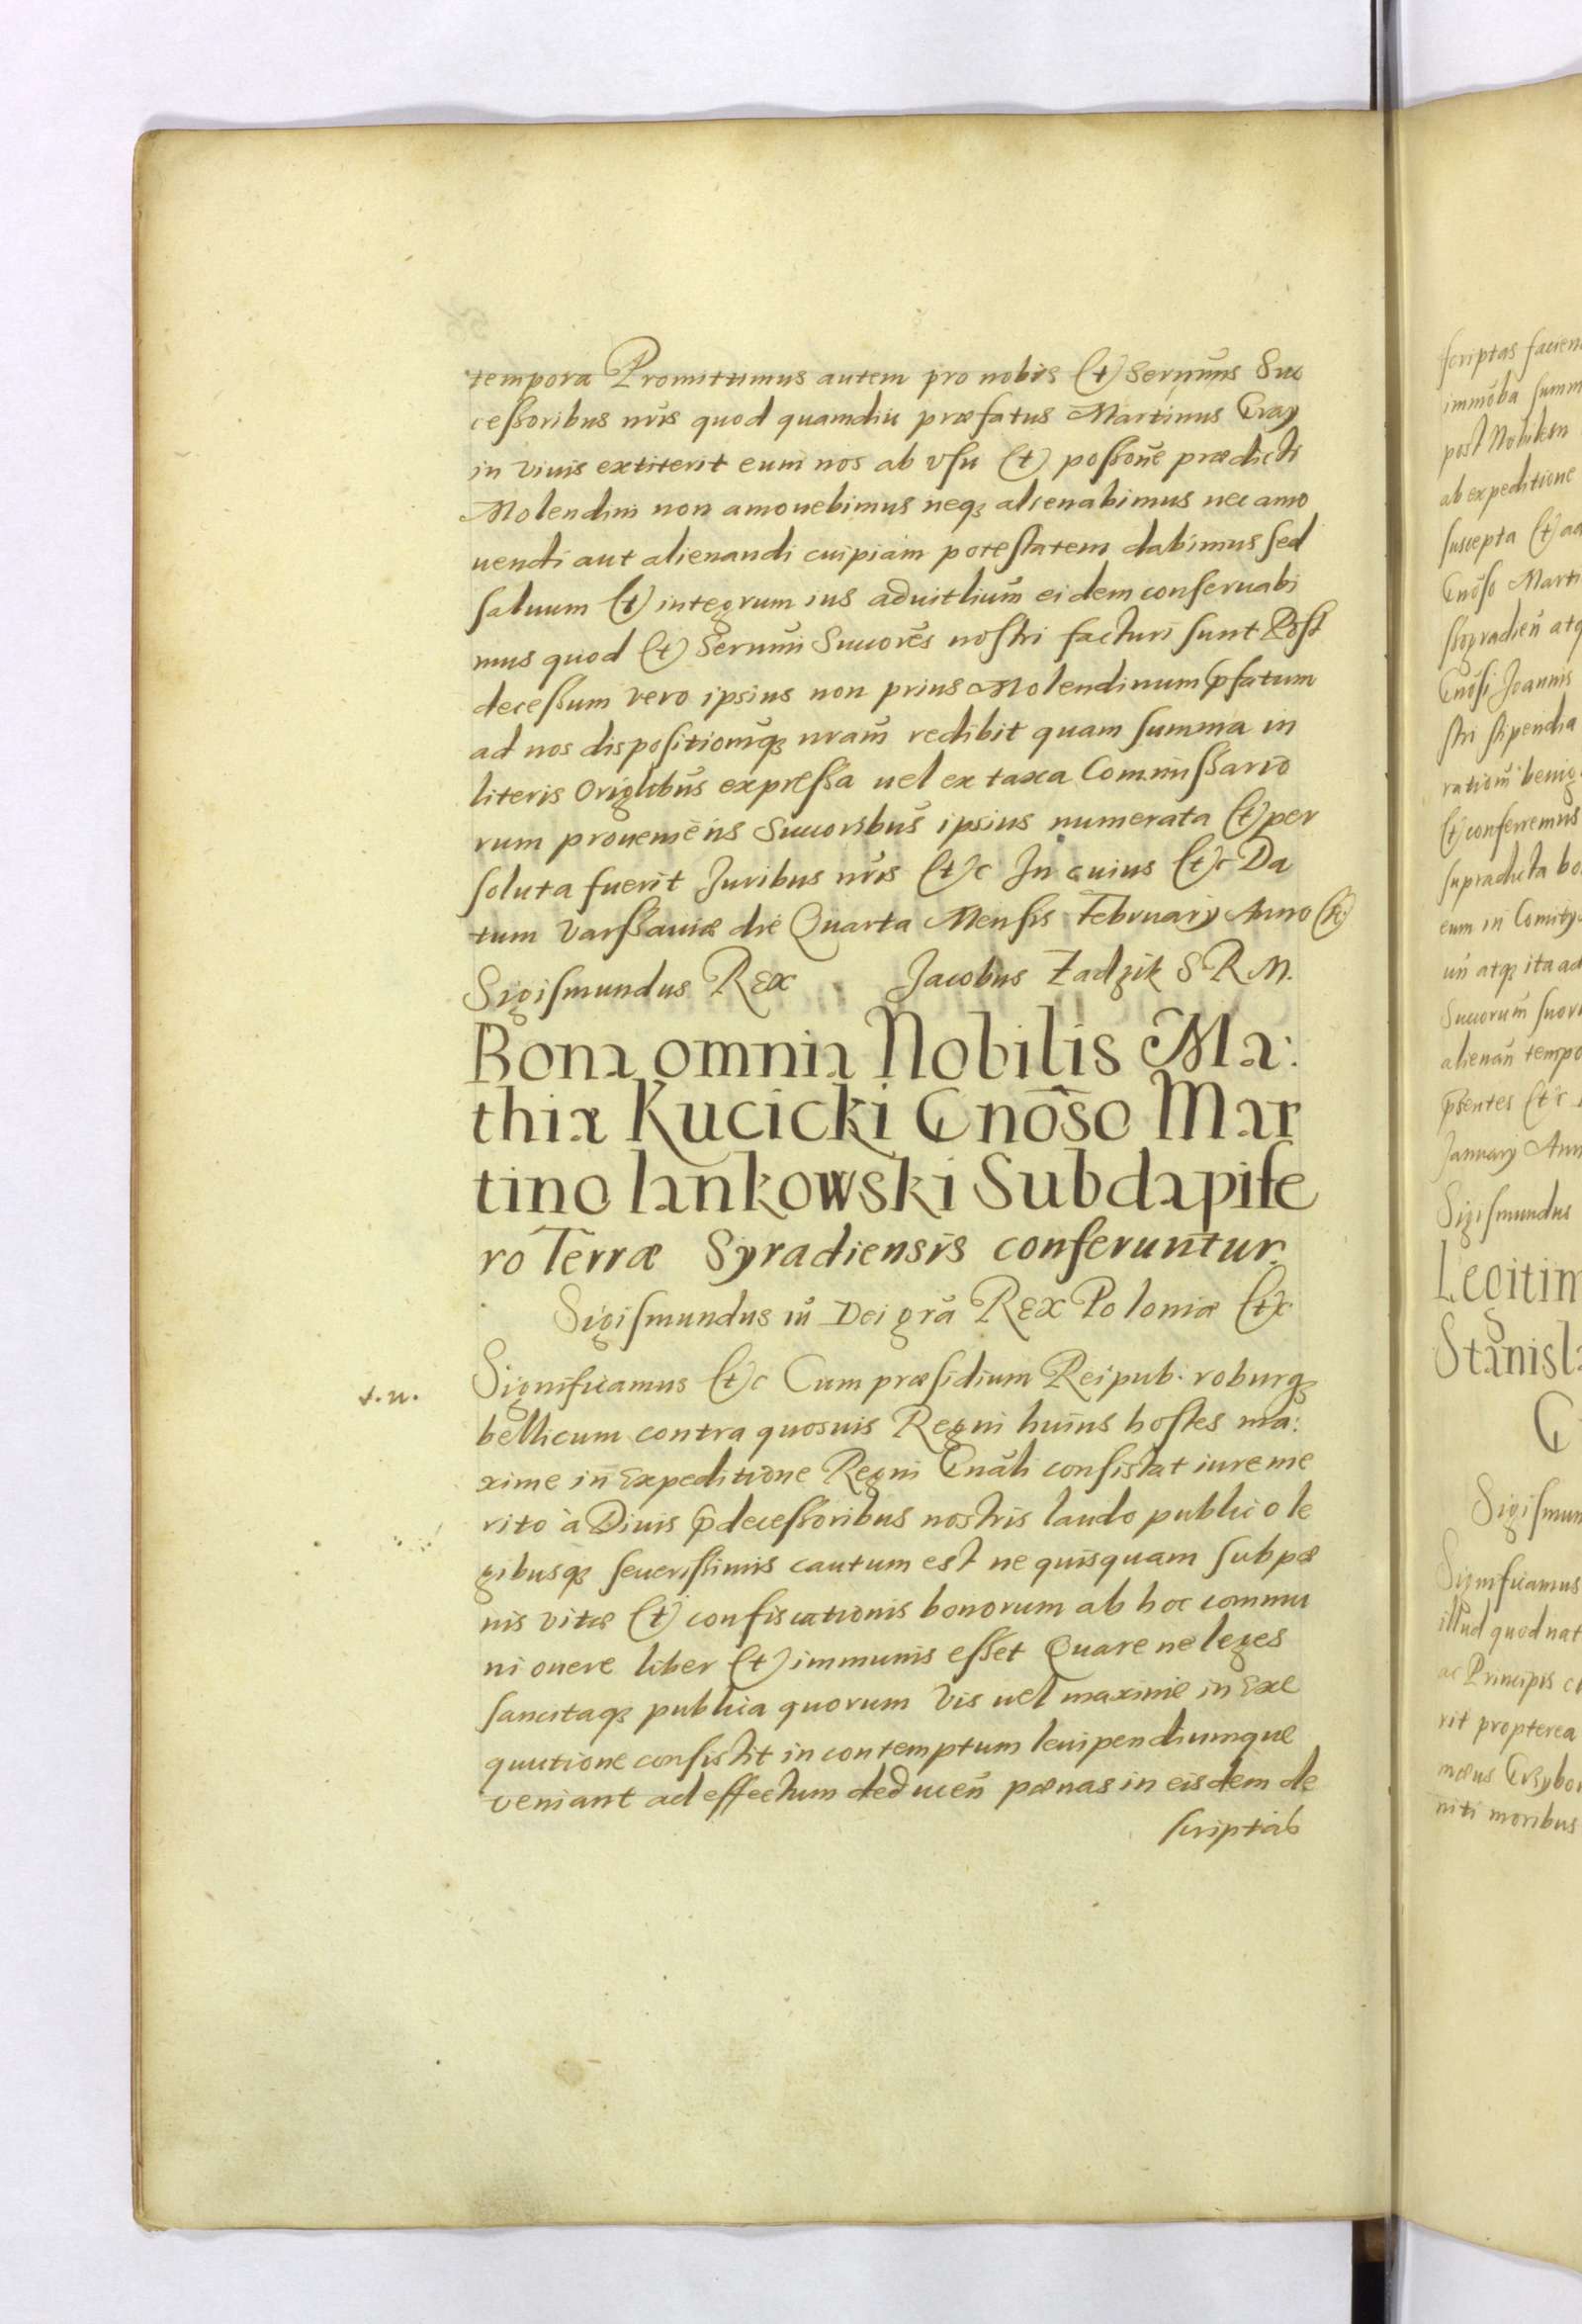 tempora Promittimus autem pro nobis (et) Serṇum̃s Suc
cessoribus nrĩs quod quamdiu præfatus Martinus Gray
in viuis extiterit eum nos ab vsu (et) possoñe prædicti
Molendini non amouebimus neq; alienabimus nec amo
uendi aut alienandi cuipiam potestatem dabimus sed
saluum (et) integrum ius aduitliũm eidem conseruabi
mus quod (et) Sernm̃i Succorẽs nostri facturi sunt Post
decessum vero ipsius non prius Molendinum p̃fatum
ad nos dispositionẽq; nram̃ redibit quam summa in
literis Origlibũs expressa uel ex taxa Commissario
rum proueniẽns Succoribũs ipsius numerata (et) per
soluta fuerit Juribus nrĩs (et)c In cuius (et)c Da
tum Varssauiæ die Quarta Mensis February Anno
Sigismundus Rex Jacobus Zadzik S R M.
Bona omnia Nobilis Ma:
thiæ Kucicki Gnõso Mar
tino Iankowski Subdapife
ro Terræ Syradiensis conferuntur.
Sigismundus iii Dei grã Rex Poloniæ (et)c
t. n.
Significamus (et)c Cum præsidium Reipub. roburq;
bellicum contra quosuis Regni huius hostes ma:
xime in Expeditione Regni Gnãli consistat iure me
rito à Diuis p̃decessoribus nostris laudo publico le
gibusq; seuerissimis cautum est ne quisquam sub pæ
nis vitæ (et) confiscationis bonorum ab hoc commu
ni onere liber (et) immunis esset Quare ne leges
sancitaq; publica quorum vis uel maxime in Exe
quutione consistit in contemptum leuipendiumque
veniant ad effectum deducen̄ pænas in eisdem de
scriptas
scriptas facien
immõba summ
post Nobilem
ab expeditione
suscepta (et) ad
Gnõso Marti
Gnõsi Joannis
stri stipendia
(et) conferemus
supradicta bo
eum in Comity
un̄ atq; ita ad
Succorum̃ suor
alienan̄ tempo
p̃sentes (et)c
January Ann
Sigismundus
Legitim
Stanisl
G
Sigismun
Significamus
illud quod nat
ac Principis
rit propterea
niti moribus